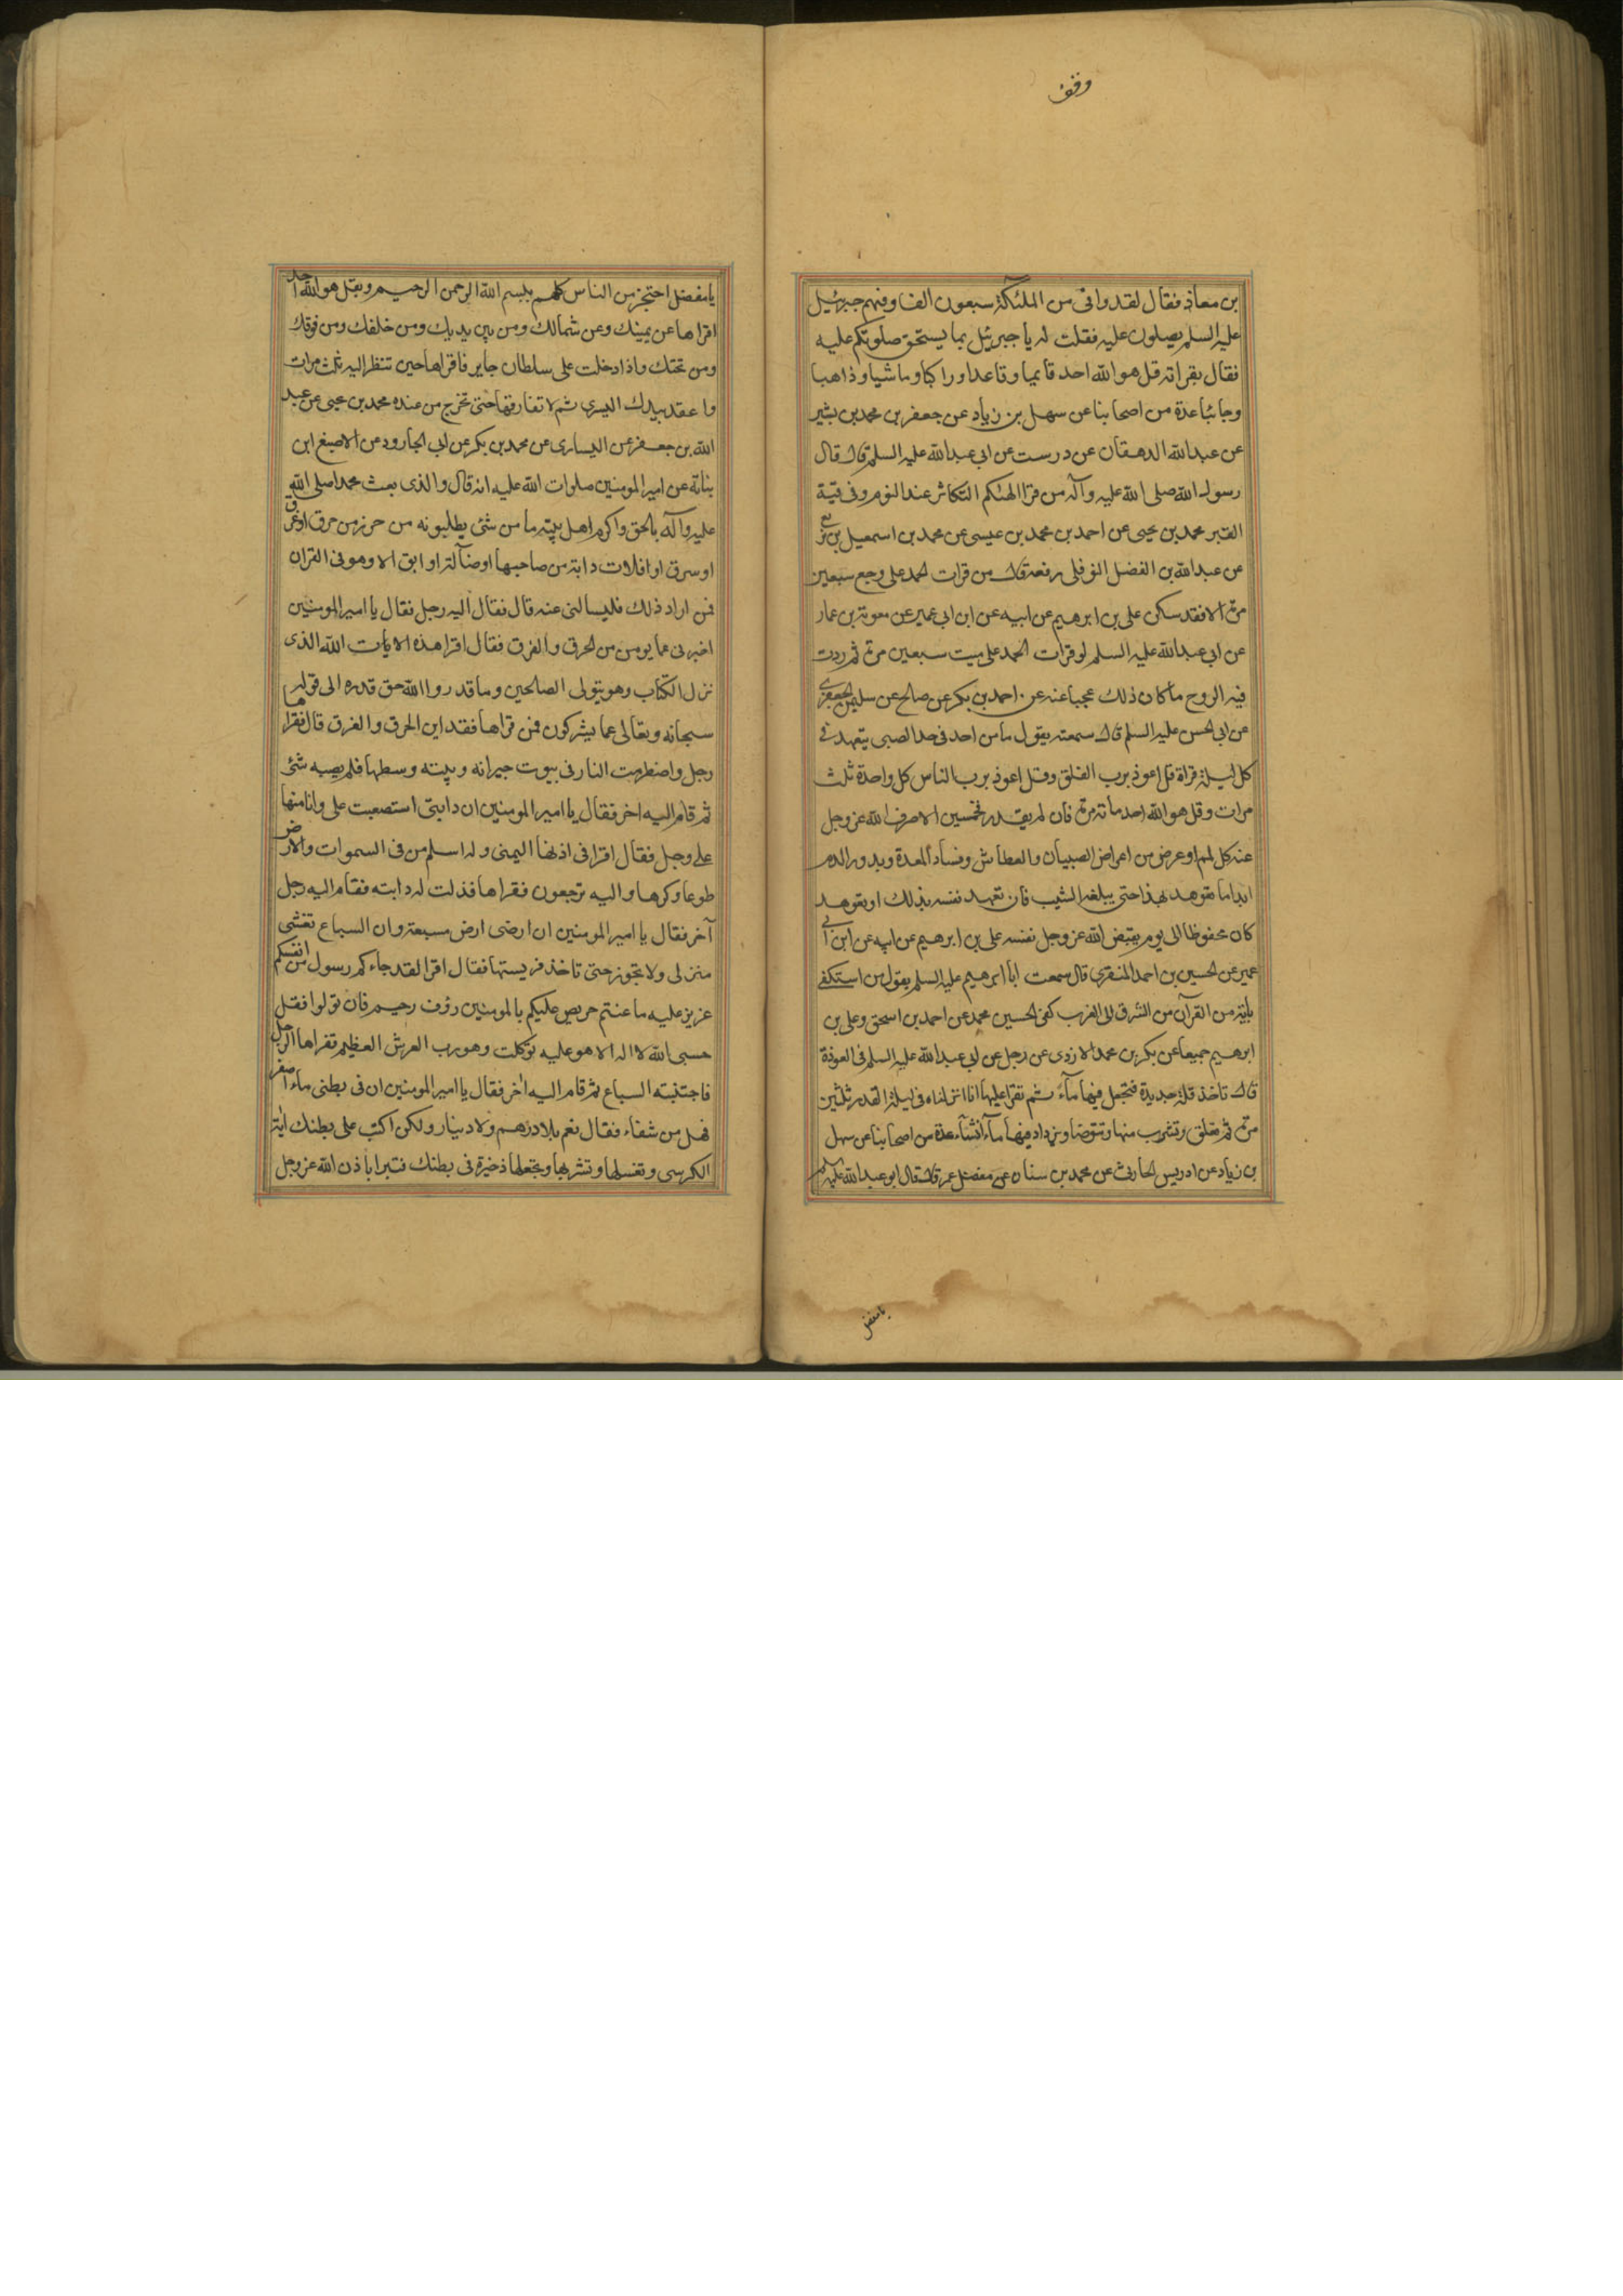 وقف
بن معاذ فقال لقد وافى من الملئكة سبعون الفا وفيهم جبرئيل
عليه السلم يصلون عليه فقلت له يا جبرئيل بما يستحق صلوتكم عليه
فقال بقراته قل هو الله احد قايما وقاعدا وراكبا وماشيا وذاهبا
وجائبا عدة من اصحابنا عن سهل بن زياد عن جعفر بن محمد بن بشير
عن عبد الله الدهقان عن درست عن ابى عبد الله عليه السلم قال قال
رسول الله صلى الله عليه وآله من قرا الهيكم التكاثر عند النوم وقى فتنة
القبر محمد بن يحيى عن احمد بن محمد بن عيسى عن محمد بن اسمعيل بن بزيع
عن عبد الله بن الفضل النوفلى رفعه قال من قرات الحمد على وجع سبعين
مرة الا فقد سكن على بن ابرهيم عن ابيه عن ابن ابى عمير عن معوية بن عمار
عن ابى عبد الله عليه السلم لو قرات الحمد على ميت سبعين مرة ثم ردت
فيه الروح ما كان ذلك عجبا عنه عن احمد بن بكر عن صالح عن سليمن الجعفرى
عن ابى الحسن عليه السلم قال سمعته يقول ما من احد فى حد الصبى يتعهد فى
كل ليلة قراة قل اعوذ برب الفلق وقل اعوذ برب الناس كل واحدة ثلث
مرات وقل هو الله احد مائة مرة فان لم يقدر فخمسين الا صرف الله عز وجل
عنه كل لمم او عرض من اعراض الصبيان والعطاش وفساد المعدة وبدور الدم
ابدا ما تعوهد بهذا حتى يبلغه الشيب فان تعهد نفسه بذلك او تعوهد
كان محفوظا الى يوم يقبض الله عز وجل نفسه على بن ابرهيم عن ابيه عن ابن ابى
عمير عن الحسين بن احمد المنقرى قال سمعت ابا ابرهيم عليه السلم يقول من استكفى
باية من القرآن من الشرق الى الغرب كفى الحسين محمد عن احمد بن اسحق وعلى بن
ابرهيم جميعا عن بكر بن محمد الازدى عن رجل عن ابى عبد الله عليه السلم فى العوذة
قال تاخذ قلة جديدة فتجعل فيها مآء ثم تقرا عليها انا انزلناه فى ليلة القدر ثلثين
مرة ثم تعلق وتشرب منها وتتوضا ويزداد فيها مآء انشآء عدة من اصحابنا عن سهل
بن زياد عن ادريس الحارثى عن محمد بن سنان عن مفضل عمر قال قال ابو عبد الله عليه السلم
يا مفضل
يا مفضل احتجز من الناس كلهم ببسم الله الرحمن الرحيم وبقل هو الله احد
اقراها عن يمينك وعن شمالك ومن بين يديك ومن خلفك ومن فوقك
ومن تحتك واذا دخلت على سلطان جاير فاقراها حين تنظر اليه ثلث مرات
واعقد بيدك اليسرى ثم لا تفارقها حتى تخرج من عنده محمد بن يحيى عن عبد
الله بن جعفر عن اليسارى عن محمد بن بكر عن ابى الجارود عن الاصبغ ابن
بناتة عن امير المومنين صلوات الله عليه انه قال والذى بعث محمدا صلى الله
عليه وآله بالحق واكرم اهل بيته ما من شئ يطلبونه من حرز من حرق او غرق
او سرق او افلات دابة من صاحبها او ضآلة او ابق الا وهو فى القران
فمن اراد ذلك فليسالنى عنه قال فقال اليه رجل فقال يا امير المومنين
اخبرنى عما يومن من الحرق والغرق فقال اقرا هذه الايات الله الذى
نزل الكتاب وهو يتولى الصالحين وما قدروا الله حق قدره الى قوله
سبحانه وتعالى عما يشركون فمن قراها فقد امن الحرق والغرق قال فقراها
رجل واضطرمت النار فى بيوت جيرانه وبيته وسطها فلم يصبه شئ
ثم قام اليه اخر فقال يا امير المومنين ان دابتى استصعبت على وانا منها
على وجل فقال اقرا فى اذنها اليمنى وله اسلم من فى السموات والارض
طوعا وكرها واليه ترجعون فقراها فذلت له دابته فقام اليه رجل
آخر فقال يا امير المومنين ان ارضى ارض مسبعة وان السباع تغشى
منزلى ولا تجوز حتى تاخذ فريستها فقال اقرا لقد جاءكم رسول من انفسكم
عزيز عليه ما عنتم حريص عليكم بالمومنين رؤف رحيم فان تولوا فقل
حسبى الله لا اله الا هو عليه توكلت وهو رب العرش العظيم فقراها الرجل
فاجتنبته السباع ثم قام اليه اخر فقال يا امير المومنين ان فى بطنى ماء اصفر
فهل من شفاء فقال نعم بلا درهم ولا دينار ولكن اكتب على بطنك اية
الكرسى وتغسلها وتشربها وتجعلها ذخيرة فى بطنك فتبرا باذن الله عز وجل